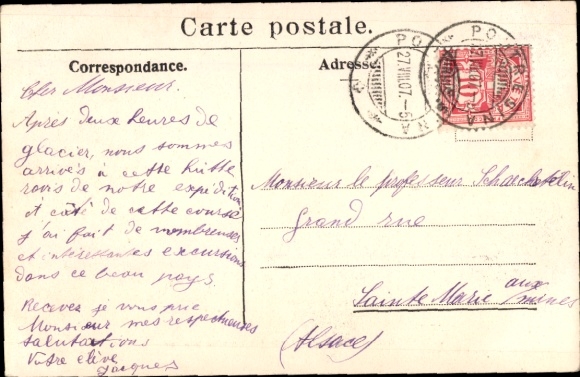 Carte postale.
Correspondance.
Adresse.
PONTRESINA
27.VIII.07.-5
PONTRESINA
10
Cher Monsieur.
Après deux heures de
glacier, nous sommes
arrivés à cette hütte
ravis de notre expédition
A côté de cette course
j'ai fait de nombreuses
et intéressantes excursions
dans ce beau pays.
Recevez je vous prie
Monsieur mes respectueuses
salutations
Votre élève
Jacques
Monsieur le professeur
Grand rue
Sainte Marie aux
mines
(Alsace)